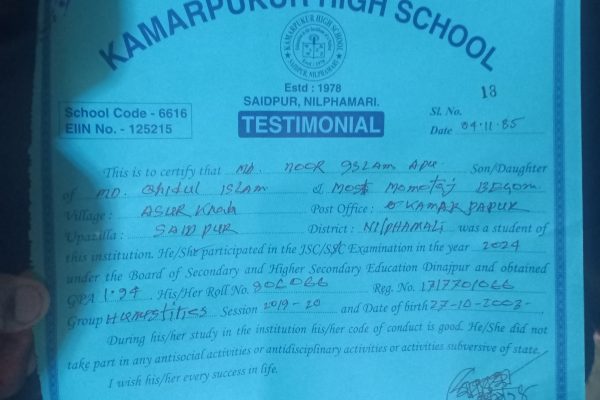 KAMARPUKUR HIGH SCHOOL
KAMARPUKUR HIGH SCHOOL
SAIDPUR, NILPHAMARI
Estd : 1978
SAIDPUR, NILPHAMARI.
School Code - 6616
EIIN No. - 125215
TESTIMONIAL
Sl. No. 18
Date 04.11.85
This is to certify that MD. NOOR ISLAM APU Son/Daughter
of MD. ISLAM & MOST MOMOTAJ BEGOM
Village : Post Office : KAMARPUKUR
Upazilla : SAIDPUR District : NILPHAMARI was a student of
this institution. He/She participated in the JSC/SSC Examination in the year 2024
under the Board of Secondary and Higher Secondary Education Dinajpur and obtained
GPA 1.94 His/Her Roll No. 906066 Reg. No. 1717701066
Group Humanities Session 2019-20 and Date of birth 27-10-2003
During his/her study in the institution his/her code of conduct is good. He/She did not
take part in any antisocial activities or antidisciplinary activities or activities subversive of state.
I wish his/her every success in life.